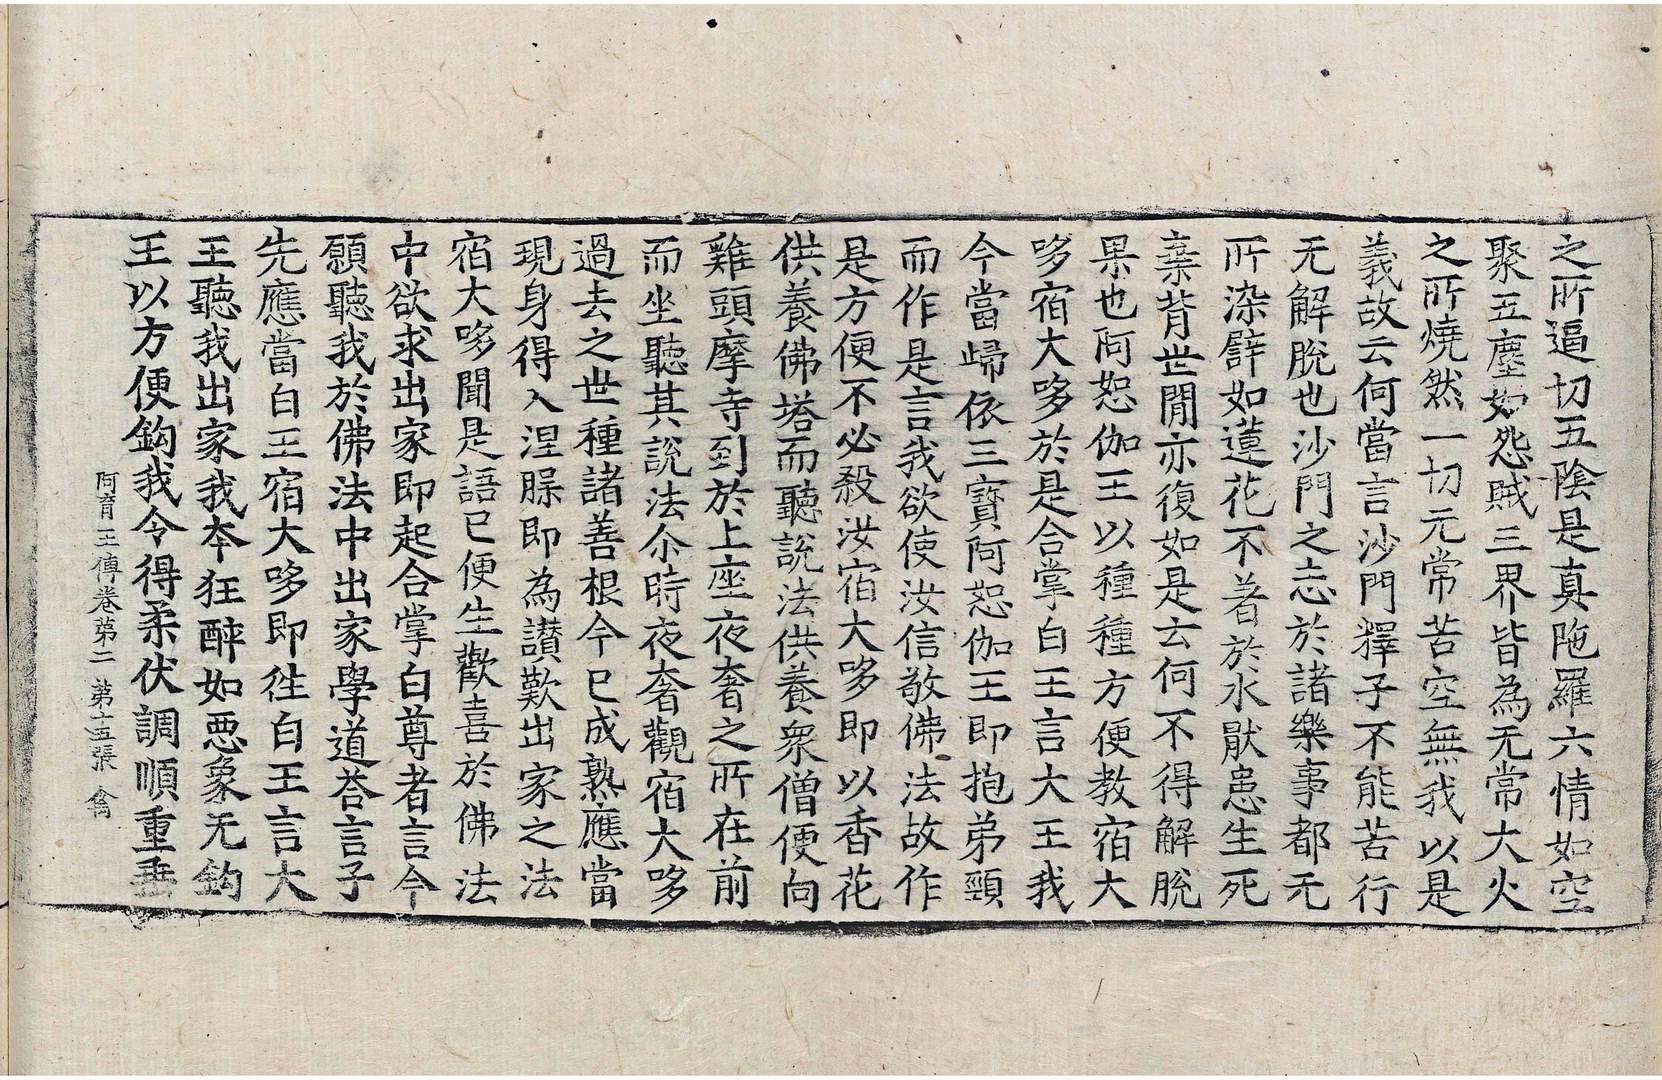 之所逼切五陰是真陁羅六情如空
聚五塵如怨賊三界皆為无常大火
之所燒然一切无常苦空無我以是
義故云何當言沙門釋子不能苦行
无解脫也沙門之忘於諸樂事都无
所染譬如蓮花不著於水猒患生死
棄背世間亦復如是云何不得解脫
果也阿恕伽王以種種方便教宿大
哆宿大哆於是合掌白王言大王我
今當歸依三寶阿恕伽王即抱弟頸
而作是言我欲使汝信敬佛法故作
是方便不必殺汝宿大哆即以香花
供養佛塔而聽說法供養眾僧便向
雞頭摩寺到於上座夜奢之所在前
而坐聽其說法尒時夜奢觀宿大哆
過去之世種諸善根今已成熟應當
現身得入涅槃即為讚歎出家之法
宿大哆聞是語已便生歡喜於佛法
中欲求出家即起合掌白尊者言今
願聽我於佛法中出家學道荅言子
先應當白王宿大哆即往白王言大
王聽我出家我本狂醉如惡象无鈎
王以方便鈎我令得柔伏調順重垂
阿育王傳卷苐二 苐十五張 禽